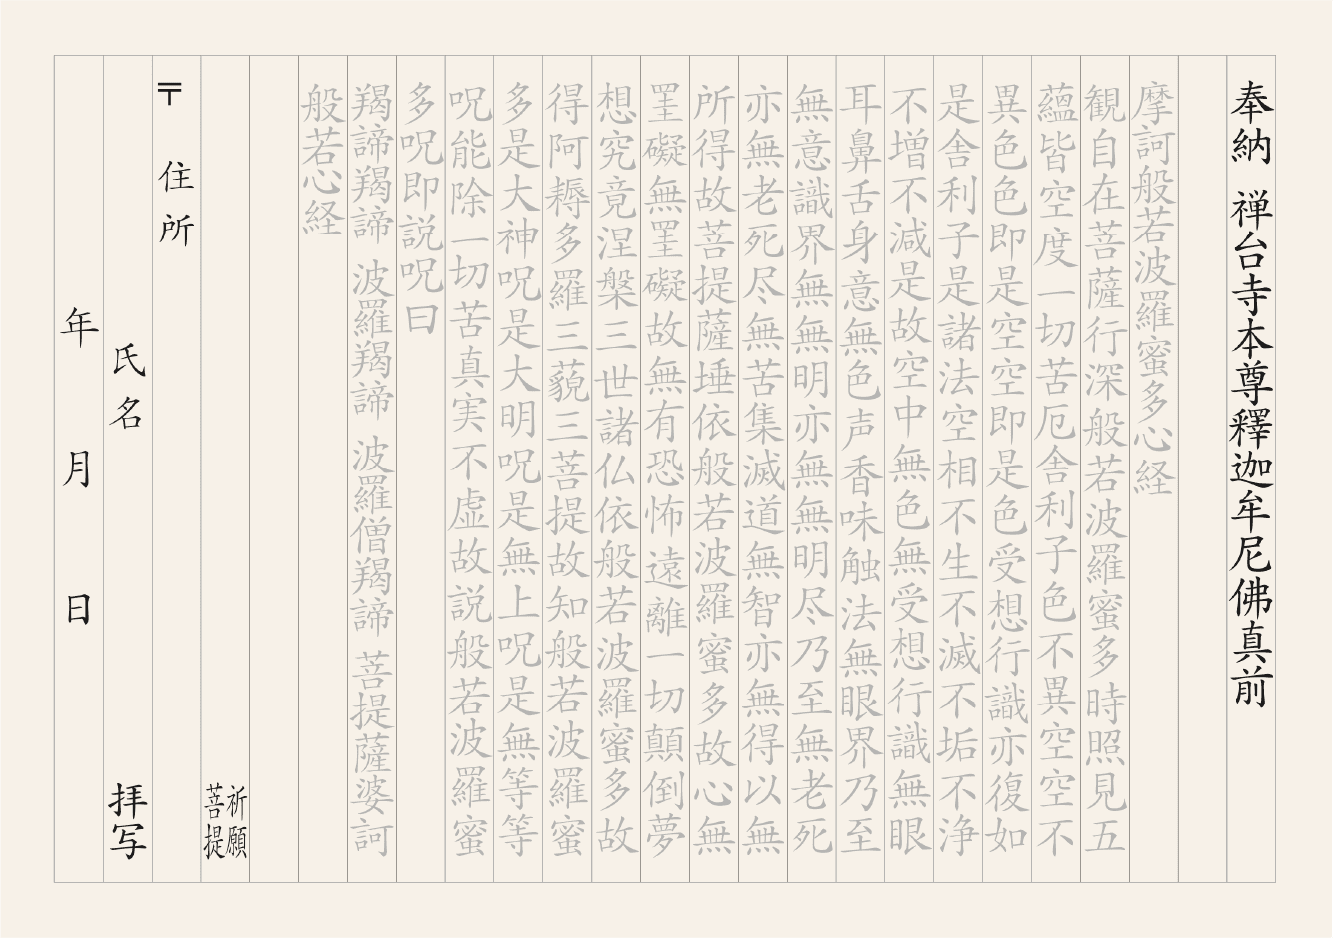 奉納 禅台寺本尊釋迦牟尼佛真前
摩訶般若波羅蜜多心経
観自在菩薩行深般若波羅蜜多時照見五
蘊皆空度一切苦厄舎利子色不異空空不
異色色即是空空即是色受想行識亦復如
是舎利子是諸法空相不生不滅不垢不浄
不増不減是故空中無色無受想行識無眼
耳鼻舌身意無色声香味触法無眼界乃至
無意識界無無明亦無無明尽乃至無老死
亦無老死尽無苦集滅道無智亦無得以無
所得故菩提薩埵依般若波羅蜜多故心無
罣礙無罣礙故無有恐怖遠離一切顛倒夢
想究竟涅槃三世諸仏依般若波羅蜜多故
得阿耨多羅三藐三菩提故知般若波羅蜜
多是大神呪是大明呪是無上呪是無等等
呪能除一切苦真実不虚故説般若波羅蜜
多呪即説呪曰
羯諦羯諦 波羅羯諦 波羅僧羯諦 菩提薩婆訶
般若心経
祈願
菩提
〒 住所
氏名 拝写
年 月 日